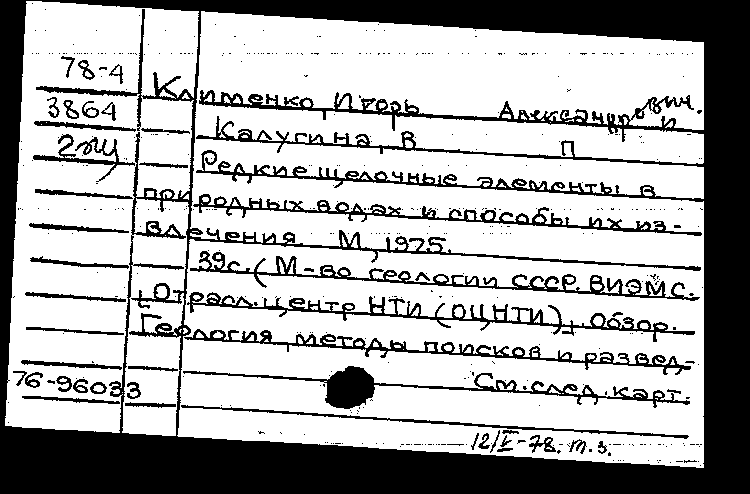 78-4
3864
Клименко, Игорь Александрович. и
Калугина, В П
Редкие щелочные элементы в
природных водах и способы их из-
влечения. М., 1975.
39с. (М-во геологии СССР. ВИЭМС.
Отрасл. центр НТИ (ОЦНТИ). Обзор.
Геология, методы поисков и развед-
76-96033
См. след. карт.
12/V-78. т.з.